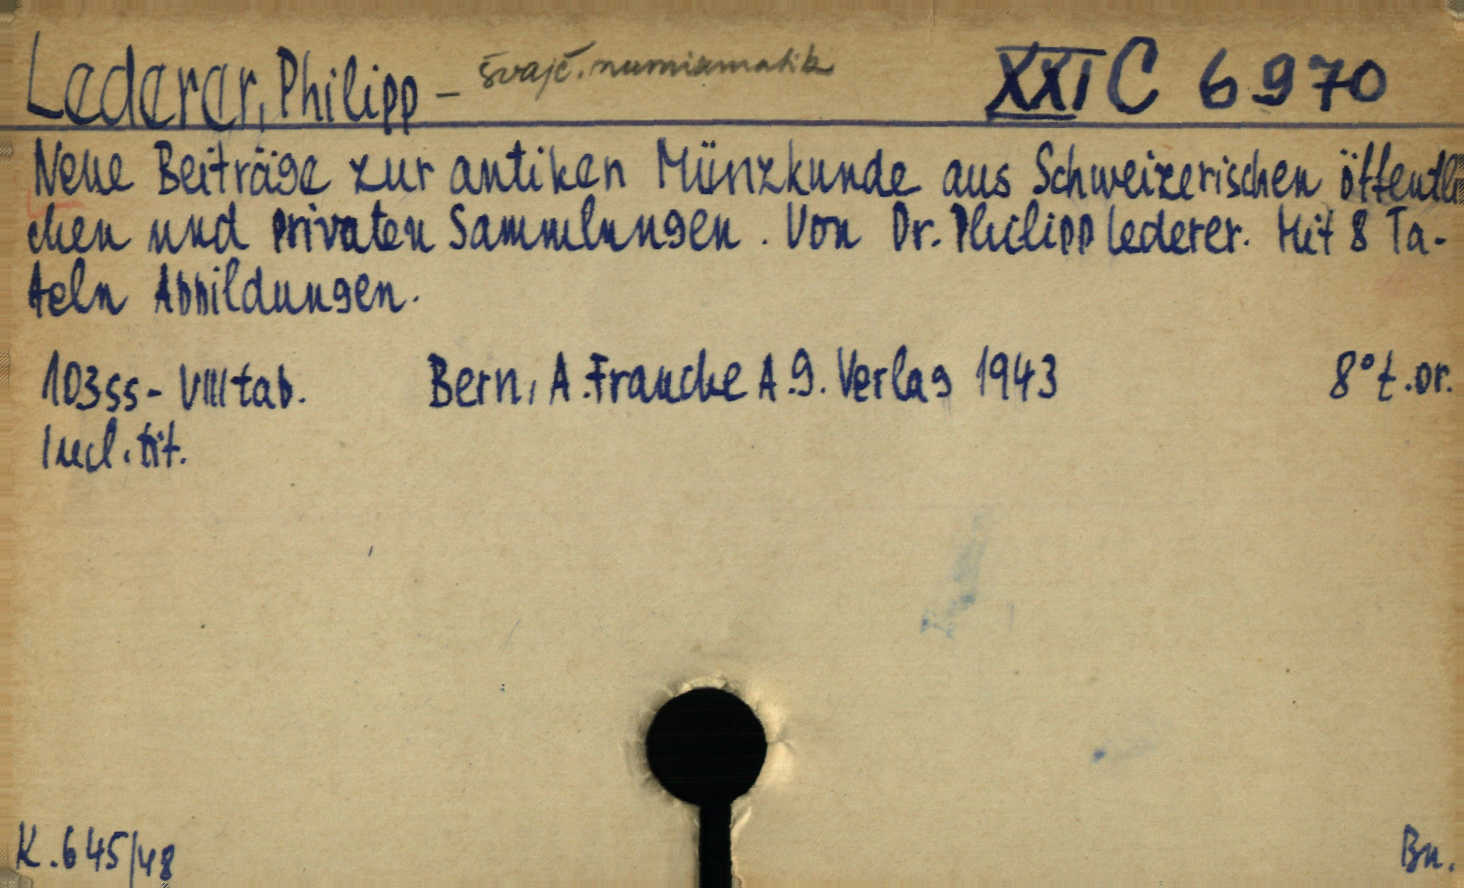 Lederer, Philipp – švajč. numismatik XXI C 6970
Neue Beiträge zur antiken Münzkunde aus Schweizerischen öffentli
chen und privaten Sammlungen. Von Dr. Philipp Lederer. Mit 8 Ta-
feln Abbildungen.
103 ss - VIII tab. Bern, A. Francke A.G. Verlag 1943 8° t. or.
Incl. tit.
K. 645/48 Bn.